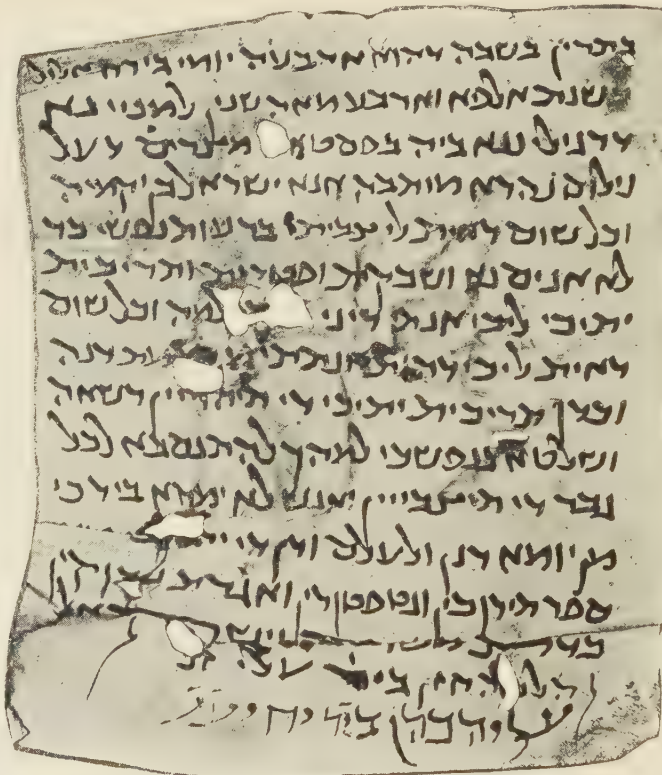 בתרין בשבה דהוא ארבעה יומי בירח אלול
שנת אלפא וארבע מאה שנין למניינא
דרגילננא ביה בפסטאט מצרים דעל
נילוס נהרא מותבה אנא ישראל בן
וכל שום דאית לי צביתי ברעות נפשי כד
לא אניסנא ושבקית ופטרית ותריכית
יתיכי ליכי אנת דיני וכל שום
דאית ליכי דהוית אנתתי מן קדמת דנה
וכדן תריכית יתיכי די תיהויין רשאה
ושלטאה בנפשכי למהך להתנסבא לכל
גבר די תיצבייין ואנש לא ימחא בידכי
מן יומא דנן ולעלם ודן די
ספר תירוכין וגט פטורין ואגרת שבוקין
כדת משה
ביר
כהן ביר